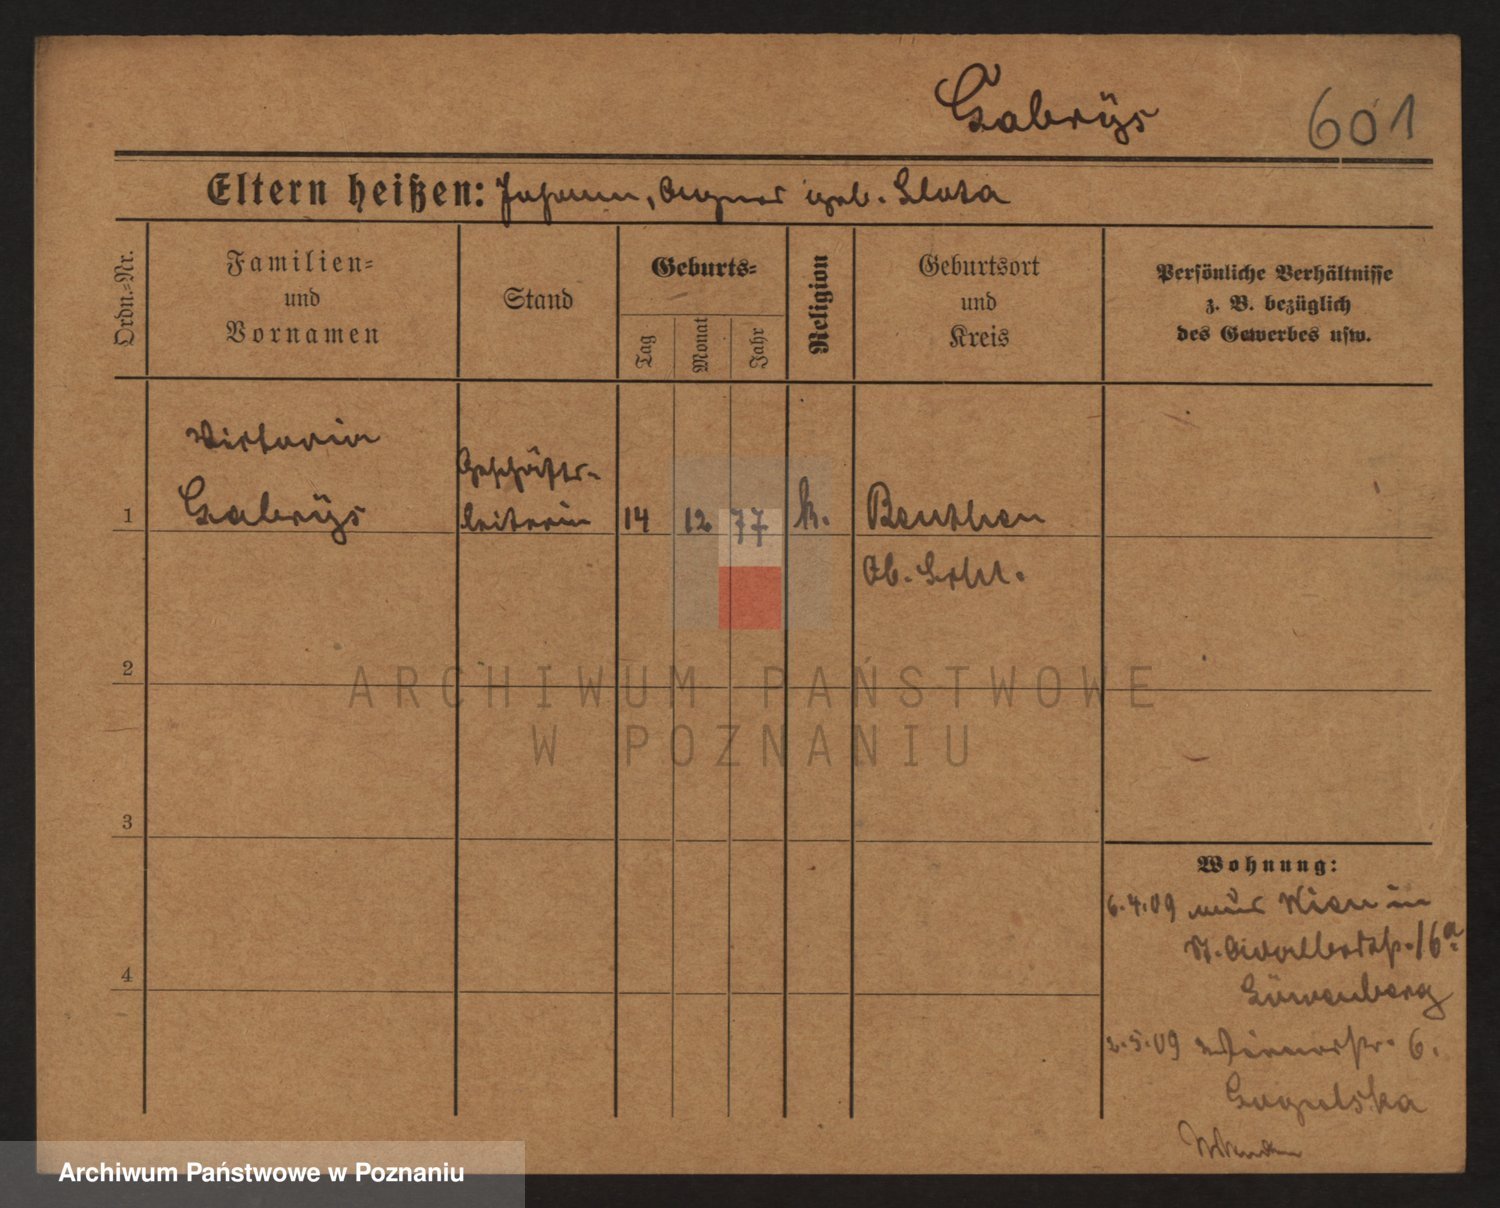 Gabrÿs 601
Eltern heißen: Johann, Agnes geb. Slota
Ordn.-Nr.
Familien-
und
Vornamen
Stand
Geburts-
Tag
Monat
Jahr
Religion
Geburtsort
und
Kreis
Persönliche Verhältnisse
z. B. bezüglich
des Gewerbes usw.
Victoria
Geschäfts-
1 Gabrÿs leiterin 14 12 77 k. Beuthen
Ob. Schl.
2
ARCHIWUM PAŃSTWOWE
W POZNANIU
3
Wohnung:
6.4.09 aus Wien in
St. Adalbertstr. 16a
Löwenberg
4
2.5.09 6.
Gogulska
Archiwum Państwowe w Poznaniu